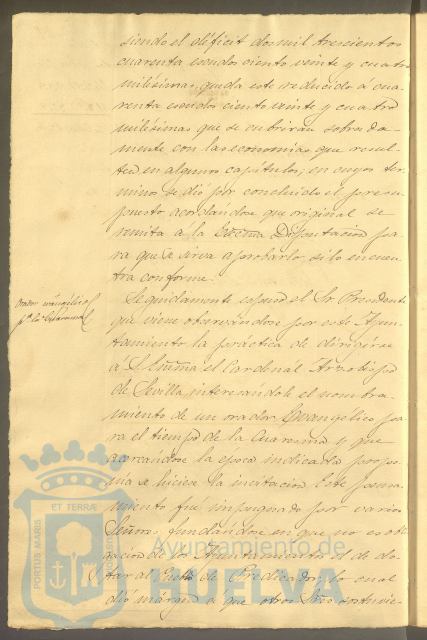 siendo el déficit dos mil trescientos
cuarenta escudos ciento veinte y cuatro
milésimas, queda este reducido á cua-
renta escudos ciento veinte y cuatro
milésimas que se cubriran sobrada-
mente con las economias que resul-
ten en algunos capítulos; en cuyos ter-
minos se dió por concluido el presu-
puesto acordandose que original se
remita a la Excma Diputacion pa-
ra que se sirva aprobarlo, si lo encuen-
tra conforme.
Orador evangélico
pª la Cuaresma
Seguidamente espuso el Sr Presidente
que viene observandose por este Ayun-
tamiento la práctica de dirigirse
a S. Emma el Cardenal Arzobispo
de Sevilla, interesandole el nombra-
miento de un orador Evangélico pa-
ra el tiempo de la Cuaresma y que
acercandose la epoca indicada propo-
nia se hiciese la invitacion. Este pensa-
miento fué impugnado por varios
Señores, fundandose en que no es obli-
gacion de los Ayuntamientos el de do-
tar al Predicador, lo cual
dió márgen a que otros Sres sostuvie-
PORTUS MARIS
ET TERRÆ
Ayuntamiento de
HUELVA